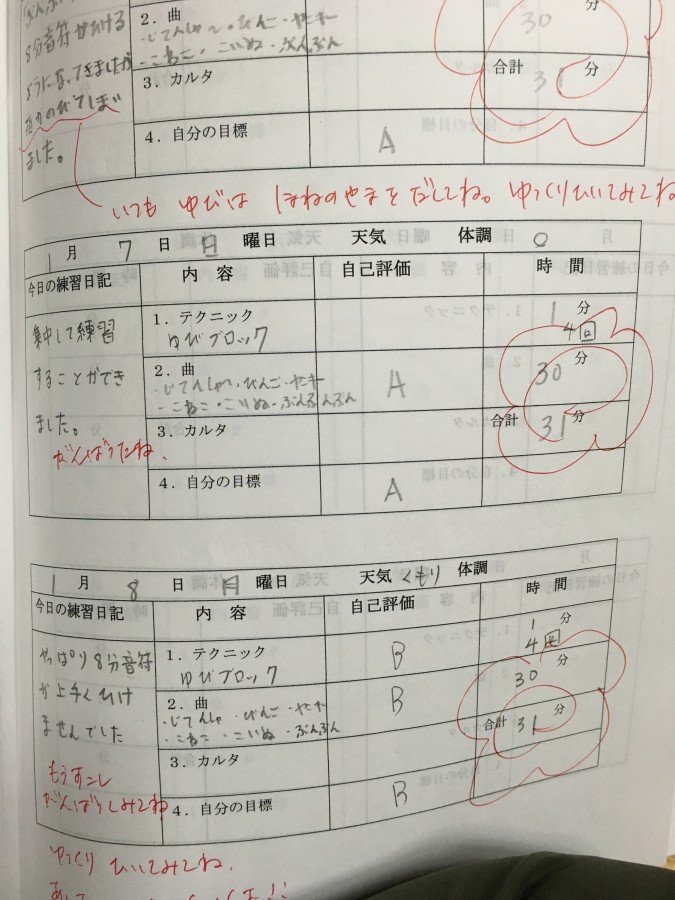 8分音符がひける
ようになってきましたが
ました。
2.曲
・じてんしゃ・びんご・ヤンキー
・こねこ・こいぬ・ぶんぶん
30 分
3.カルタ
合計 31 分
4.自分の目標 A
いつも ゆびは ほねのやまを だしてね。ゆっくりひいてみてね
1月 7日 日曜日 天気 体調 ○
今日の練習日記 内 容 自己評価 時 間
集中して練習
することができ
ました。
がんばったね。
1.テクニック
ゆびブロック
1 分
4回
2.曲
・じてんしゃ・びんご・ヤンキー
・こねこ・こいぬ・ぶんぶんぶん
A
30 分
3.カルタ
合計 31 分
4.自分の目標 A
1月 8日 月曜日 天気 くもり 体調
今日の練習日記 内 容 自己評価 時 間
やっぱり8分音符
が上手くひけ
ませんでした
もうすこし
がんばってみてね
1.テクニック
ゆびブロック
B
1 分
4回
2.曲
・じてんしゃ・びんご・ヤンキー
・こねこ・こいぬ・ぶんぶん
B
30 分
3.カルタ
合計 31 分
4.自分の目標 B
ゆっくり ひいてみてね。